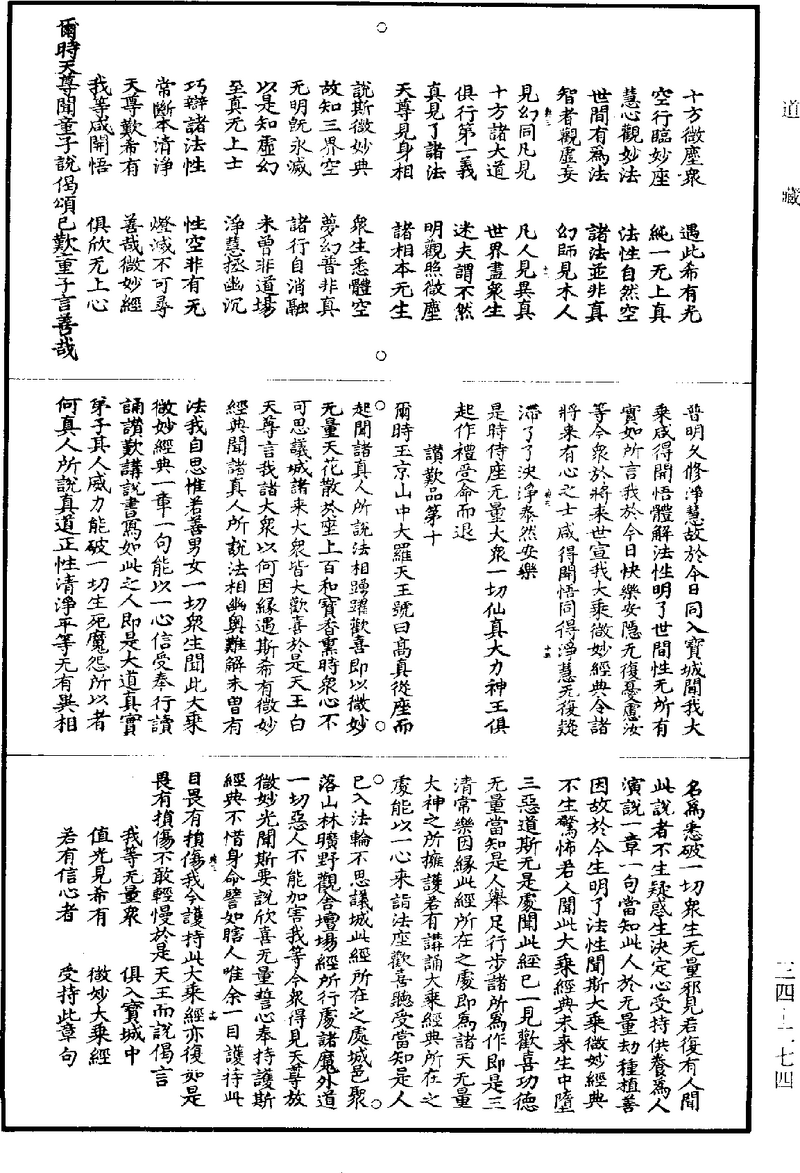 道藏
十方微塵衆　遇此希有光
空行臨妙座　純一无上真
慧心觀妙法　法性自然空
世間有為法　諸法並非真
智者觀虛妄　幻師見木人
見幻同凡見　凡人見異真
十方諸大道　世界盡衆生
俱行第一義　迷夫謂不然
真見了諸法　明觀照微塵
天尊見身相　諸相本无生
說斯微妙典　衆生悉體空
故知三界空　夢幻普非真
无明既永滅　諸行自消融
以是知虛幻　未曾非道場
至真无上士　淨慧拯幽沉
巧辯諸法性　性空非有无
常斷本清淨　燈滅不可尋
天尊歎希有　善哉微妙經
我等咸開悟　俱欣无上心
爾時天尊聞童子說偈頌已歎童子言善哉
普明久修淨慧故於今日同入寶城聞我大
乘咸得開悟體解法性明了世間性无所有
實如所言我於今日快樂安隱无復憂慮汝
等今衆於將來世宣我大乘微妙經典令諸
將來有心之士咸得開悟同得淨慧无復疑
滯了了決淨泰然安樂
是時侍座无量大衆一切仙真大力神王俱
起作禮受命而退
讃歎品第十
爾時玉京山中大羅天王號曰高真從座而
起聞諸真人所說法相踴躍歡喜即以微妙
无量天花散於座上百和寶香熏時衆心不
可思議城諸來大衆皆大歡喜於是天王白
天尊言我諸大衆以何因緣遇斯希有微妙
經典聞諸真人所說法相幽奧難解未曾有
法我自思惟若善男女一切衆生聞此大乘
微妙經典一章一句能以一心信受奉行讀
誦讃歎講說書寫如此之人即是大道真實
弟子其人威力能破一切生死魔怨所以者
何真人所說真道正性清淨平等无有異相
名為悉破一切衆生无量邪見若復有人聞
此說者不生疑惑生決定心受持供養為人
演說一章一句當知此人於无量劫種植善
因故於今生明了法性聞斯大乘微妙經典
不生驚怖若人聞此大乘經典未來生中墮
三惡道斯无是處聞此經已一見歡喜功德
无量當知是人舉足行步諸所為作即是三
清常樂因緣此經所在之處即為諸天无量
大神之所擁護若有講誦大乘經典所在之
處能以一心來詣法座歡喜聽受當知是人
已入法輪不思議城此經所在之處城邑聚
落山林曠野觀舍壇場經所行處諸魔外道
一切惡人不能加害我等今衆得見天尊放
微妙光聞斯要說欣喜无量誓心奉持護斯
經典不惜身命譬如瞎人唯余一目護持此
目畏有損傷我今護持此大乘經亦復如是
畏有損傷不敢輕慢於是天王而說偈言
我等无量衆　俱入寶城中
值光見希有　微妙大乘經
若有信心者　受持此章句
三四—二七四